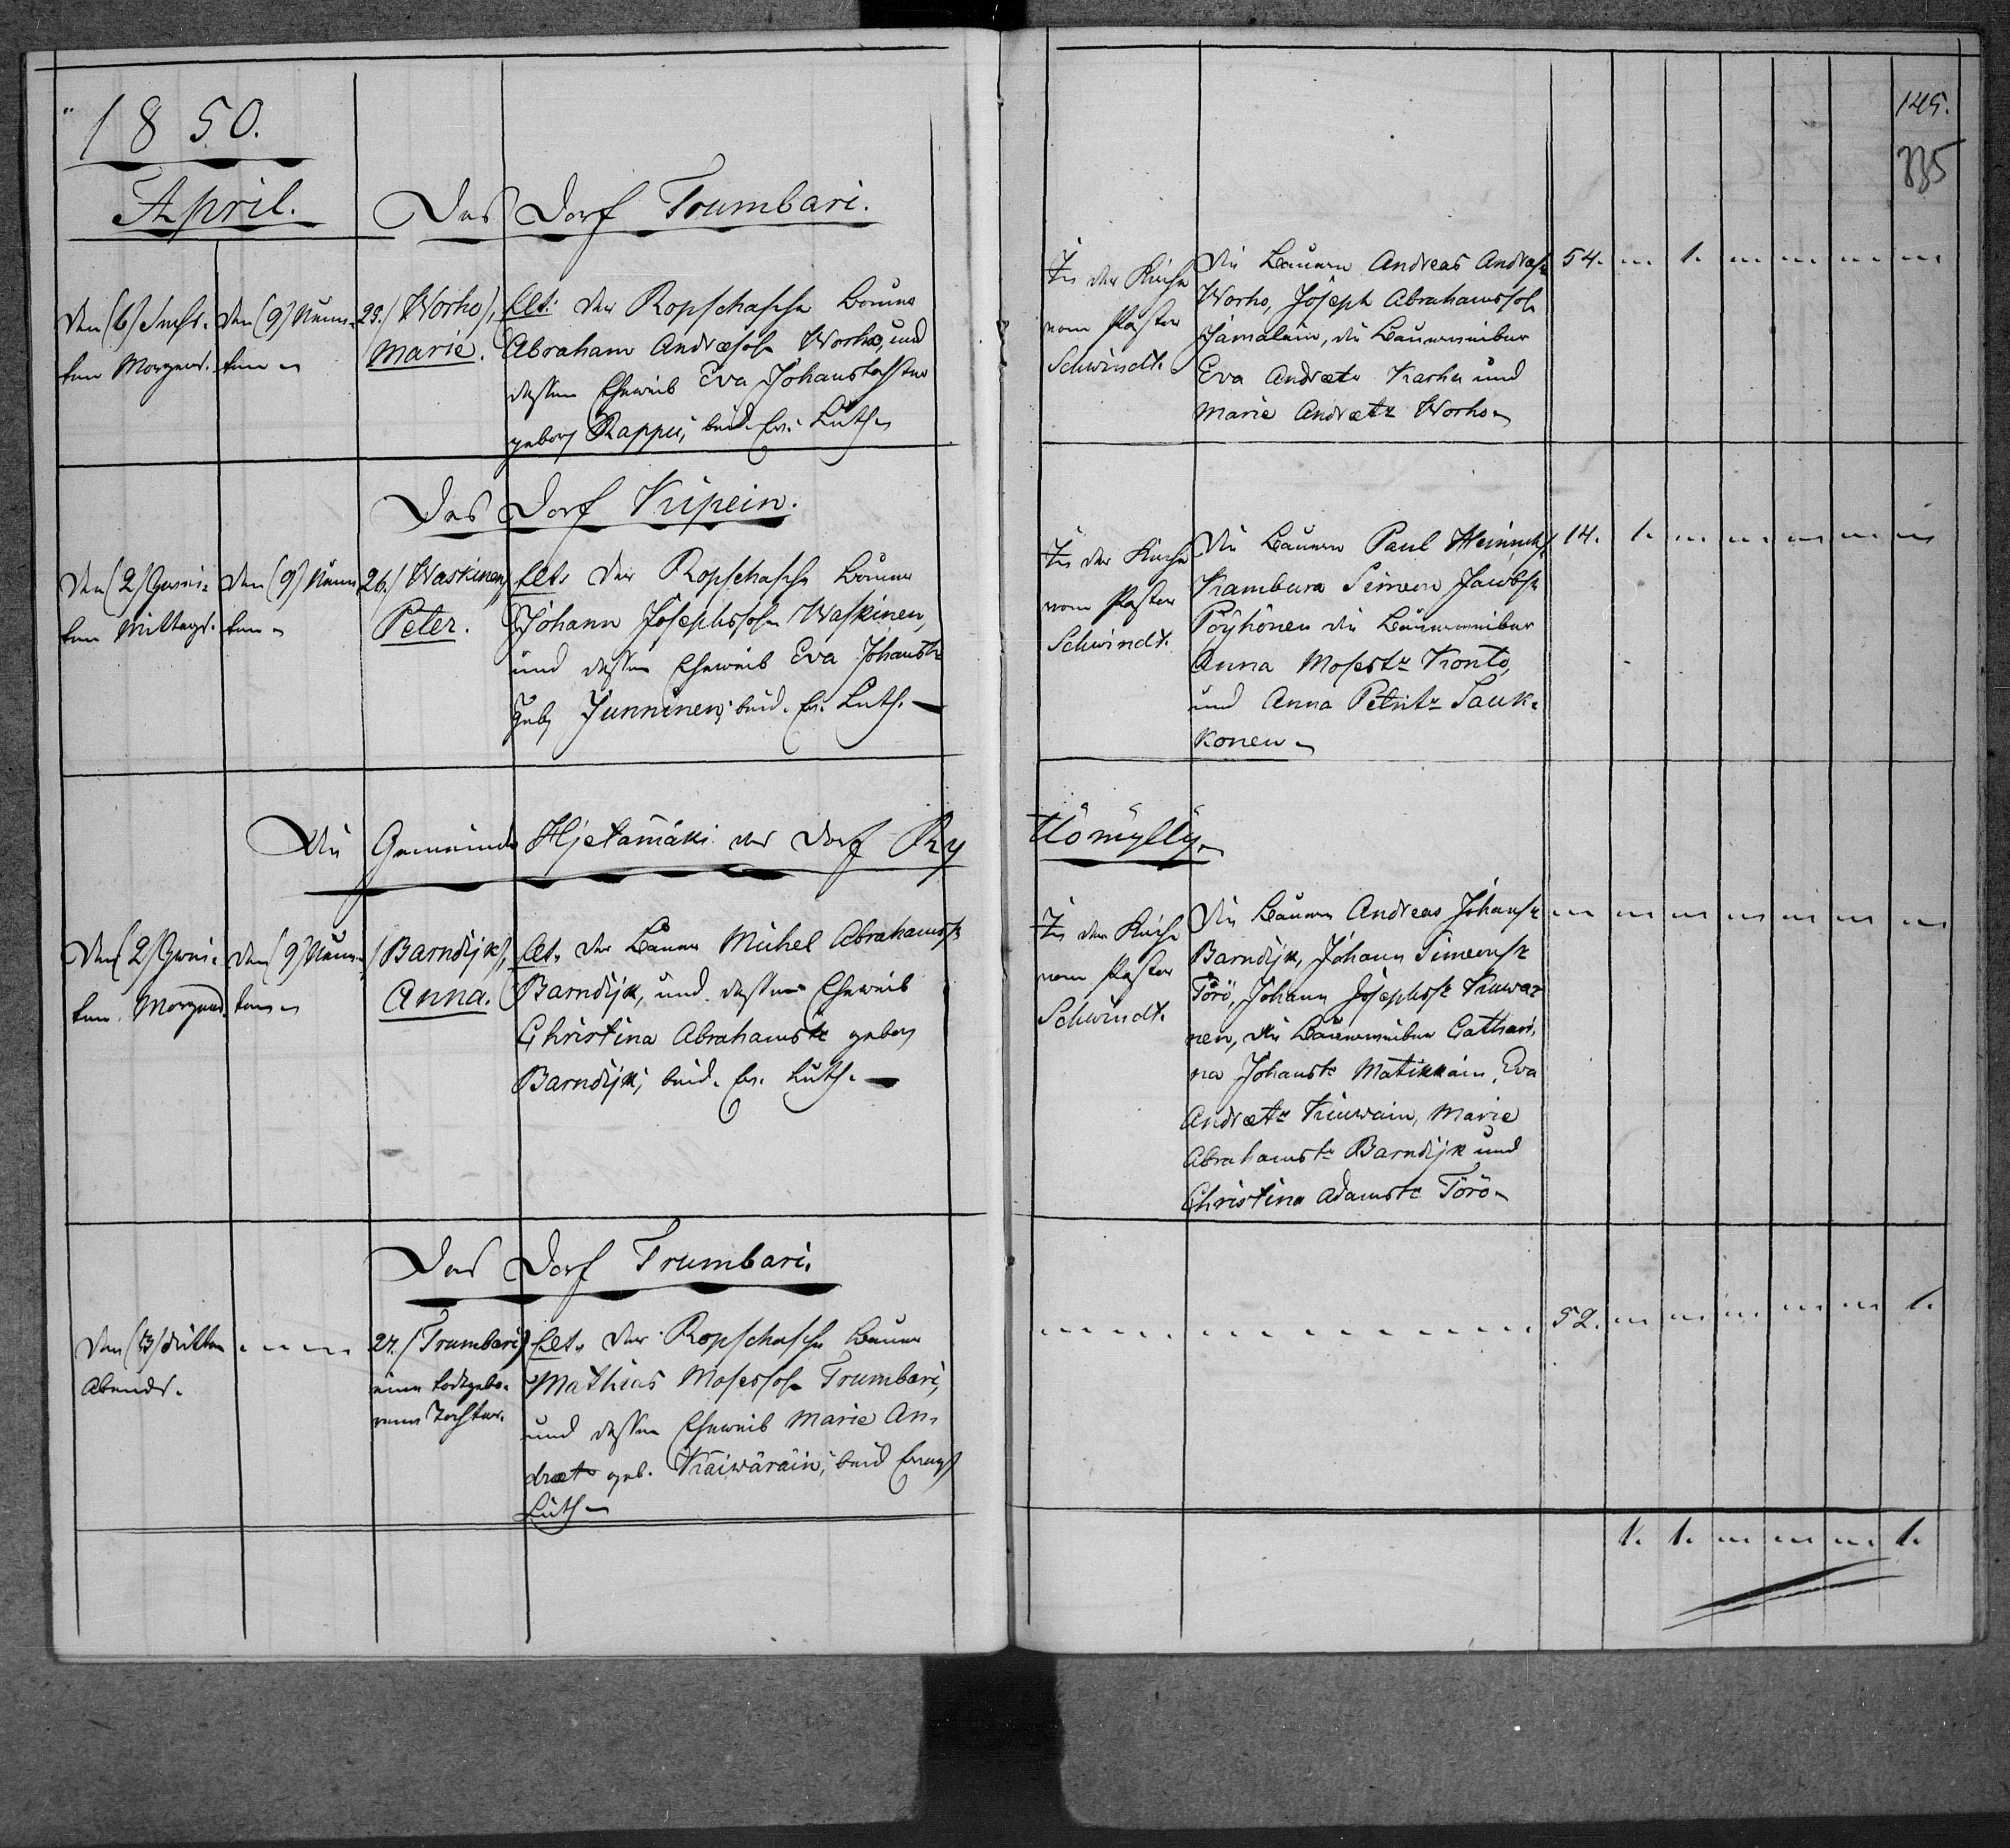 1850.
April.
Das Dorf Trumbari.
Den (6) Sechs-
ten Morgens.
den (9) Neun-
ten
23. (Worho),
Marie.
Elt: der Ropschasche Bauer
Abraham Andreæsohn Worho, und
dessen Eheweib Eva Johanstochter
geborn Rappu, beid. Ev. Luth.
In der Kirche
vom Pastor
Schwindt.
Die Bauern Andreas Andreæs.
Worho, Joseph Abrahamssohn
Jämäläin, die Bauerweiber
Eva Andreæt. Karhu und
Marie Andreæt. Worho
54. 1.
149.
Das Dorf Kipein.
Den (2) Zwei-
ten Mittags.
den (9) Neun
ten
26. (Waskinen)
Peter.
Elt. der Ropschasche Bauer
Johann Josephssohn Waskinen,
und dessen Eheweib Eva Johanst.
geb. Junninen; beid. Ev. Luth.
In der Kirche
vom Pastor
Schwindt.
Die Bauern Paul Heinrichs.
Krambura Simeon Jacobs.
Pöyhönen die Bauerweiber
Anna Mosest. Konto,
und Anna Petrit. Sauk-
konen
14. 1.
Die Gemeinde Hjetämäki das Dorf Ry
Hömylly
Den (2) Zwei-
ten Morgens.
den (9) Neun-
ten
(Barndijk),
Anna.
Elt. der Bauer Michel Abrahamss.
Barndijk, und dessen Eheweib
Christina Abrahamst. geborn
Barndijk; beid. Ev. Luth.
In der Kirche
vom Pastor
Schwindt.
Die Bauern Andreas Johans.
Barndijk, Johann Simeons.
Törö, Johann Josephss. Kiuwa-
nen, die Bauerweiber Cathari-
na Johanst. Matikkain, Eva
Andreæt. Kiuwain, Marie
Abrahamst. Barndijk und
Christina Adamst. Törö
Das Dorf Trumbari.
Den (3) dritten
Abends.
27. (Trumbari)
eine todtgebo-
rene Tochter.
Elt. der Ropschasche Bauer
Mathias Mosessohn Trumbari,
und dessen Eheweib Marie An-
dreæt. geb. Käiwäräin; beid Evang.
Luth
52. 1.
1. 1. 1.